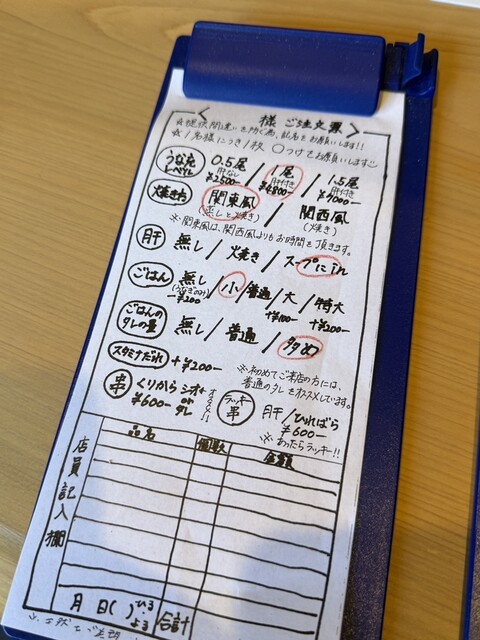 様 ご注文票
☆提供間違いを防ぐ為、記名をお願いします!!
☆1名様につき1枚 ○つけてお願いします
うな丸レベル 0.5尾 肝なし ¥2500- / 1尾 肝付き ¥4800- / 1.5尾 肝付き ¥7000-
焼き方 関東風 (蒸しと焼き) / 関西風 (焼き)
※関東風は、関西風よりもお時間を頂きます。
肝 無し / 焼き / スープにin
ごはん 無し (うなぎのみ) -¥200 / 小 / 普通 / 大 +¥100- / 特大 +¥200-
ごはんのタレの量 無し / 普通 / 多め
スタミナだれ +¥200-
※初めてご来店の方には、
普通のタレをオススメしています。
串 くりから シオ or タレ ¥600- オススメ!!
ラッキー串 肝 / ひればら ¥600-
※あったらラッキー!!
店員記入欄
品名 個数 金額
月 日( ) ひる・よる 合計